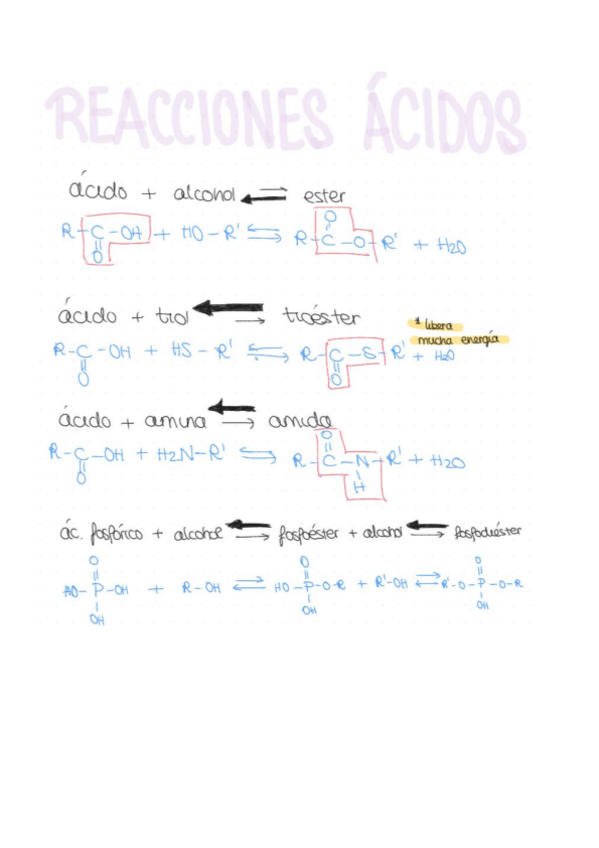 REACCIONES ÁCIDOS
ácido + alcohol ⇌ ester
R-C-OH + HO-R' ⇌ R-C-O-R' + H2O
O
O
ácido + tiol ⇌ tioéster
* libera
mucha energía
R-C-OH + HS-R' ⇌ R-C-S-R' + H2O
O
O
ácido + amina ⇌ amida
O
R-C-OH + H2N-R' ⇌ R-C-N-R' + H2O
O
H
ác. fosfórico + alcohol ⇌ fosfoéster + alcohol ⇌ fosfodiéster
O O O
HO-P-OH + R-OH ⇌ HO-P-O-R + R'-OH ⇌ R'-O-P-O-R
OH OH OH